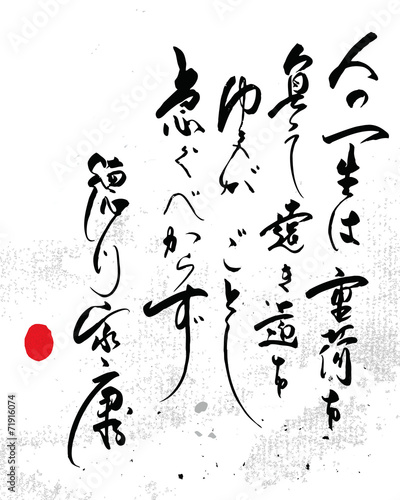 人の一生は重荷を
負て遠き道を
ゆくがごとし
急ぐべからず
徳川家康
71916074